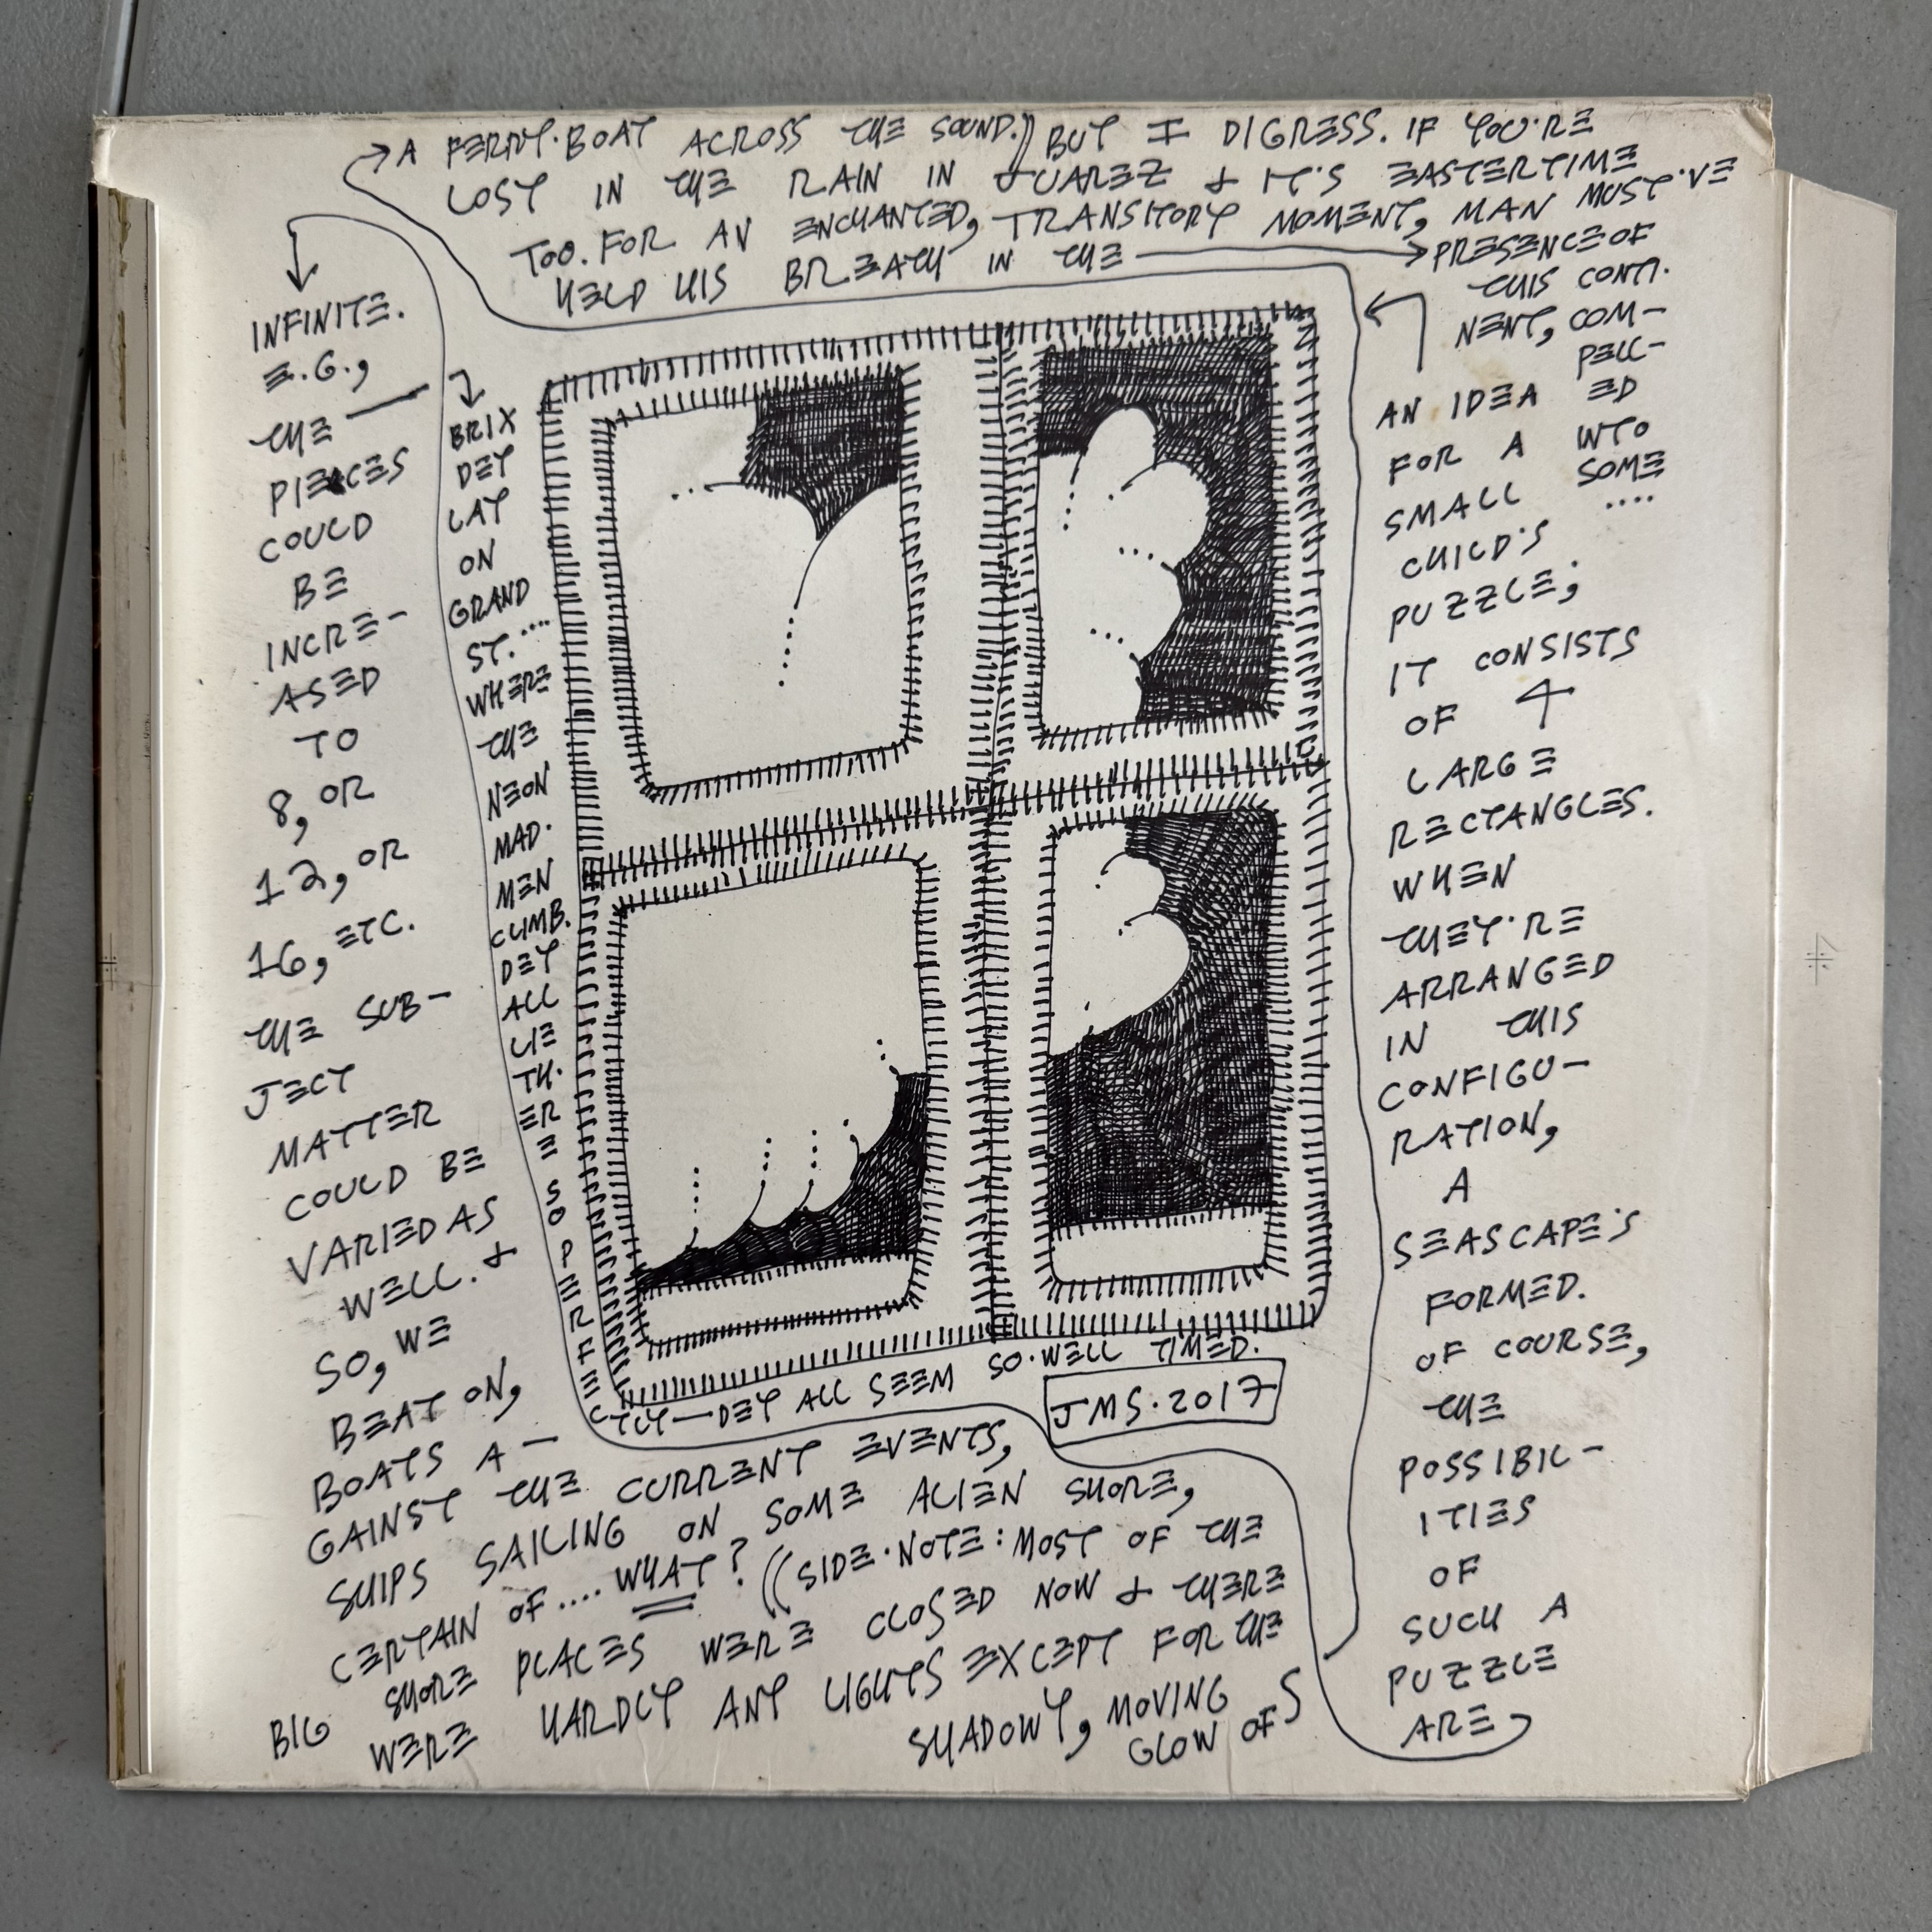 AN IDEA
FOR A
SMALL
CHILD'S
PUZZLE;
IT CONSISTS
OF 4
LARGE
RECTANGLES.
WHEN
THEY'RE
ARRANGED
IN THIS
CONFIGU-
RATION,
A
SEASCAPE'S
FORMED.
OF COURSE,
THE
POSSIBIL-
ITIES
OF
SUCH A
PUZZLE
ARE
INFINITE.
E.G.,
THE —
PIECES
COULD
BE
INCRE-
ASED
TO
8, OR
12, OR
16, ETC.
THE SUB-
JECT
MATTER
COULD BE
VARIED AS
WELL. &
SO, WE
BEAT ON,
BOATS A-
GAINST THE CURRENT EVENTS,
SHIPS SAILING ON SOME ALIEN SHORE,
CERTAIN OF .... WHAT? ((SIDE·NOTE: MOST OF THE
BIG SHORE PLACES WERE CLOSED NOW & THERE
WERE HARDLY ANY LIGHTS EXCEPT FOR THE
SHADOWY, MOVING
GLOW OF
A FERRY·BOAT ACROSS THE SOUND.)) BUT I DIGRESS. IF YOU'RE
LOST IN THE RAIN IN JUAREZ & IT'S EASTERTIME
TOO. FOR AN ENCHANTED, TRANSITORY MOMENT, MAN MUST'VE
HELD HIS BREATH IN THE
PRESENCE OF
THIS CONTI-
NENT, COM-
PELL-
ED
INTO
SOME
....
BRIX
DEY
LAY
ON
GRAND
ST. ....
WHERE
THE
NEON
MAD·
MEN
CLIMB.
DEY
ALL
LIE
TH·
ER
E
SO
P
E
R
F
E
CTLY—DEY ALL SEEM SO·WELL TIMED.
JMS·2017